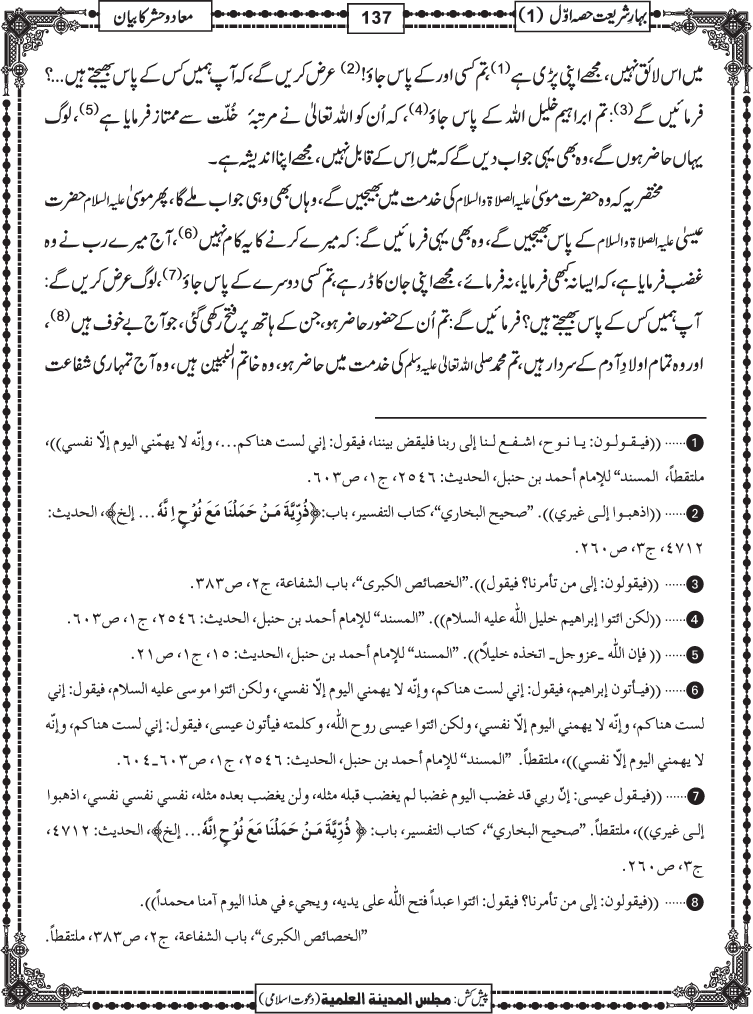 بہارِ شریعت حصہ اوّل (1)
137
معاد و حشر کا بیان
میں اس لائق نہیں، مجھے اپنی پڑی ہے(1)، تم کسی اور کے پاس جاؤ!(2) عرض کریں گے، کہ آپ ہمیں کس کے پاس بھیجتے ہیں...؟
فرمائیں گے(3): تم ابراہیم خلیل اللہ کے پاس جاؤ(4)، کہ اُن کو اللہ تعالیٰ نے مرتبۂ خُلّت سے ممتاز فرمایا ہے(5)، لوگ
یہاں حاضر ہوں گے، وہ بھی یہی جواب دیں گے کہ میں اِس کے قابل نہیں، مجھے اپنا اندیشہ ہے۔
مختصر یہ کہ وہ حضرت موسیٰ علیہ الصلاۃ والسلام کی خدمت میں بھیجیں گے، وہاں بھی وہی جواب ملے گا، پھر موسیٰ علیہ السلام حضرت
عیسیٰ علیہ الصلاۃ والسلام کے پاس بھیجیں گے، وہ بھی یہی فرمائیں گے: کہ میرے کرنے کا یہ کام نہیں(6)، آج میرے رب نے وہ
غضب فرمایا ہے، کہ ایسا نہ کبھی فرمایا، نہ فرمائے، مجھے اپنی جان کا ڈر ہے، تم کسی دوسرے کے پاس جاؤ(7)، لوگ عرض کریں گے:
آپ ہمیں کس کے پاس بھیجتے ہیں؟ فرمائیں گے: تم اُن کے حضور حاضر ہو، جن کے ہاتھ پر فتح رکھی گئی، جو آج بے خوف ہیں(8)،
اور وہ تمام اولادِ آدم کے سردار ہیں، تم محمد صلی اللہ تعالیٰ علیہ وسلم کی خدمت میں حاضر ہو، وہ خاتم النبیین ہیں، وہ آج تمہاری شفاعت
1 ...... ((فيـقـولـون: يـا نـوح، اشـفـع لـنـا إلى ربنا فليقض بيننا، فيقول: إني لست هناكم...، وإنّه لا يهمّني اليوم إلّا نفسي))،
ملتقطاً، المسند“ للإمام أحمد بن حنبل، الحديث: ٢٥٤٦، ج١، ص٦٠٣.
2 ...... ((اذهبـوا إلـى غيري)). ”صحيح البخاري“، كتاب التفسير، باب:﴿ذُرِّيَّةَ مَـنْ حَمَلْنَا مَعَ نُوْحٍ اِنَّهٗ... إلخ﴾، الحديث:
٤٧١٢، ج٣، ص٢٦٠.
3 ...... ((فيقولون: إلى من تأمرنا؟ فيقول)).”الخصائص الكبرى“، باب الشفاعة، ج٢، ص٣٨٣.
4 ...... ((لكن ائتوا إبراهيم خليل الله عليه السلام)). ”المسند“ للإمام أحمد بن حنبل، الحديث: ٢٥٤٦، ج١، ص٦٠٣.
5 ...... (( فإن الله ـعزوجلـ اتخذه خليلاً)). ”المسند“ للإمام أحمد بن حنبل، الحديث: ١٥، ج١، ص٢١.
6 ...... ((فيـأتون إبراهيم، فيقول: إني لست هناكم، وإنّه لا يهمني اليوم إلّا نفسي، ولكن ائتوا موسى عليه السلام، فيقول: إني
لست هناكم، وإنّه لا يهمني اليوم إلّا نفسي، ولكن ائتوا عيسى روح الله، وكلمته فيأتون عيسى، فيقول: إني لست هناكم، وإنّه
لا يهمني اليوم إلّا نفسي))، ملتقطاً. ”المسند“ للإمام أحمد بن حنبل، الحديث: ٢٥٤٦، ج١، ص٦٠٣ـ٦٠٤.
7 ...... ((فيـقول عيسى: إنّ ربي قد غضب اليوم غضبا لم يغضب قبله مثله، ولن يغضب بعده مثله، نفسي نفسي نفسي، اذهبوا
إلـى غيري))، ملتقطاً. ”صحيح البخاري“، كتاب التفسير، باب: ﴿ ذُرِّيَّةَ مَـنْ حَمَلْنَا مَعَ نُوْحٍ اِنَّهٗ... إلخ﴾، الحديث: ٤٧١٢،
ج٣، ص٢٦٠.
8 ...... ((فيقولون: إلى من تأمرنا؟ فيقول: ائتوا عبداً فتح الله على يديه، ويجيء في هذا اليوم آمنا محمداً)).
”الخصائص الكبرى“، باب الشفاعة، ج٢، ص٣٨٣، ملتقطاً.
پیش کش: مجلس المدينة العلمية (دعوت اسلامی)